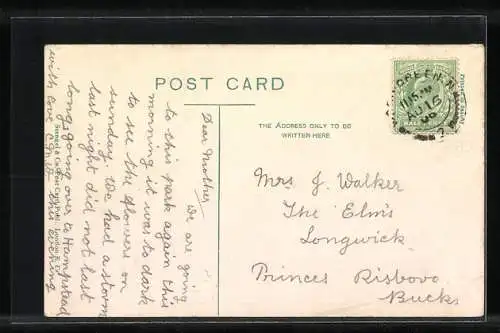 POST CARD
THE ADDRESS ONLY TO BE
WRITTEN HERE
Dear Mother
We are going
to this park again this
morning it was to dark
to see the flowers on
sunday. We had a storm
last night did not last
long, going over to Hampstead
this evening
with love
Mrs J. Walker
The Elms
Longwick
Princes Risboro
Bucks
GREEN.N
11.15 PM
AU 16
06
2